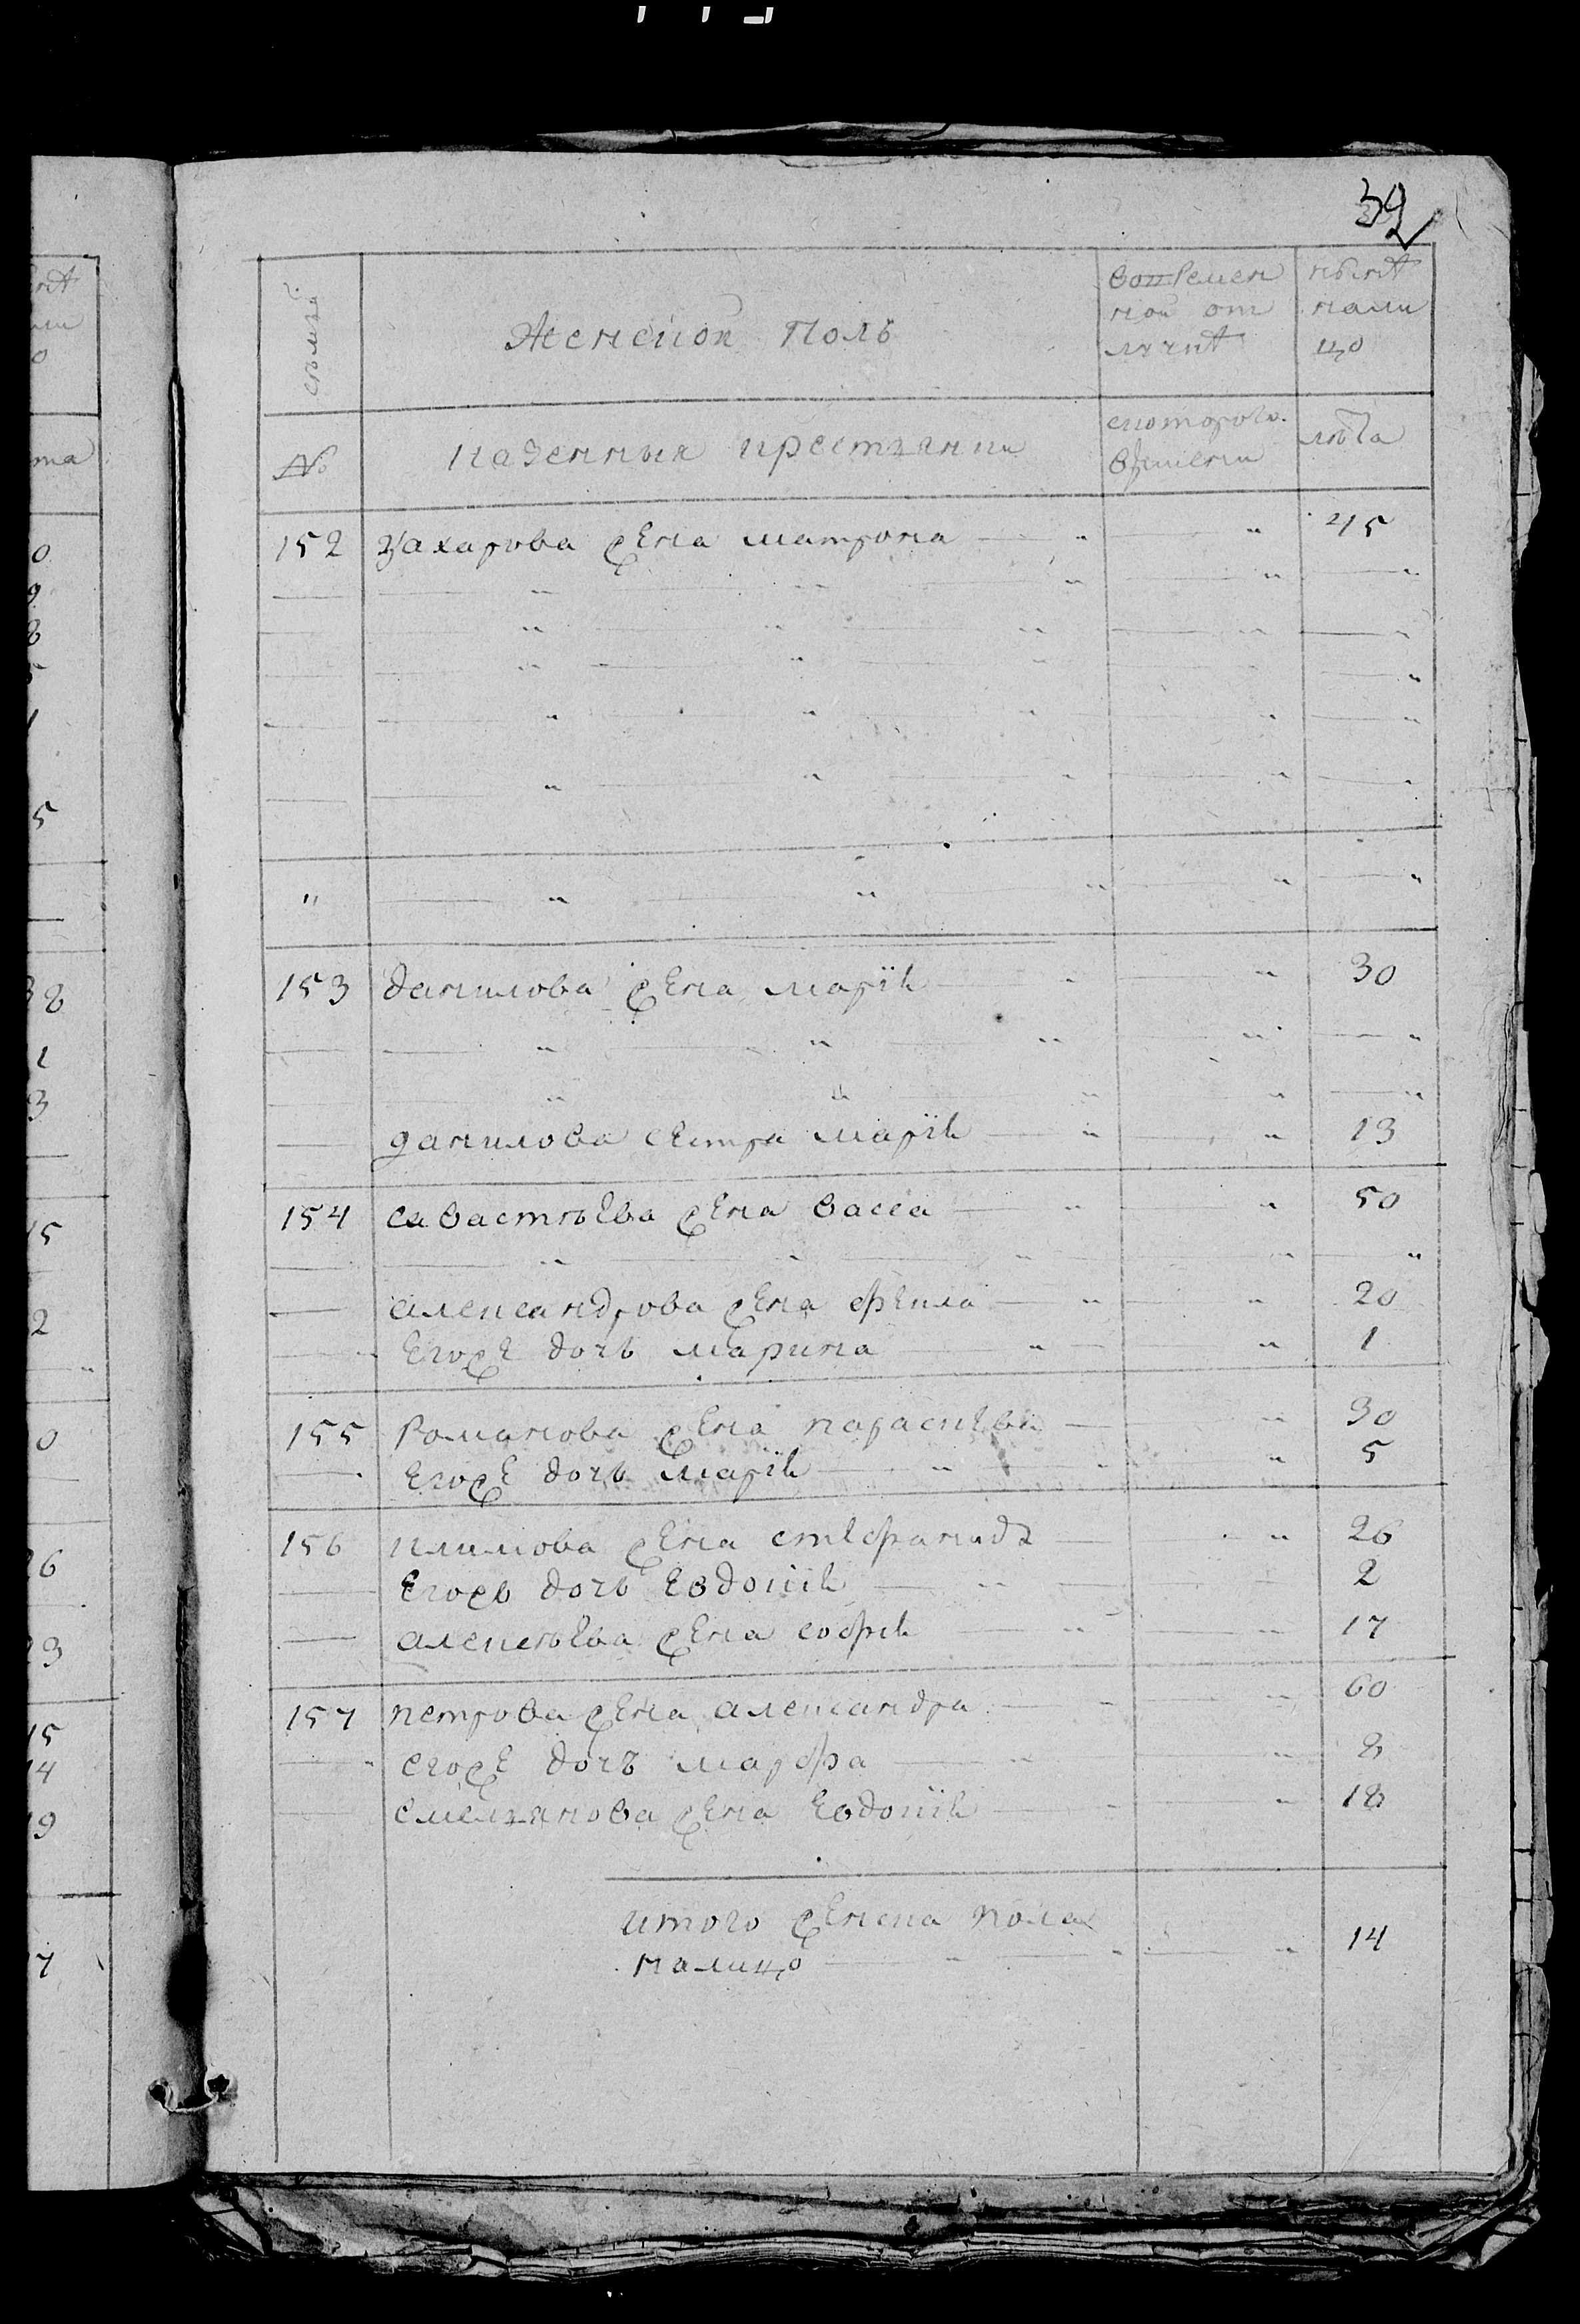 39
семьи
Женской Полъ
вовремен
ной от
лучкѣ
нынѣ
нали
цо
№
казенныя крестьянки
скотораго
времени
лѣта
152 захарова жена матрона 45
153 данилова жена марія 30
данилова сестра марія 13
154 савастьева жена васса 50
александрова жена фекла 20
егоже дочь марина 1
155 романова жена парасковья 30
егоже дочь марія 5
156 климова жена стефанида 26
егожъ дочь евдокія 2
алексѣева жена софія 17
157 петрова жена александра 60
егоже дочъ марфа 8
емельянова жена евдокія 18
итого женска пола
налицо 14